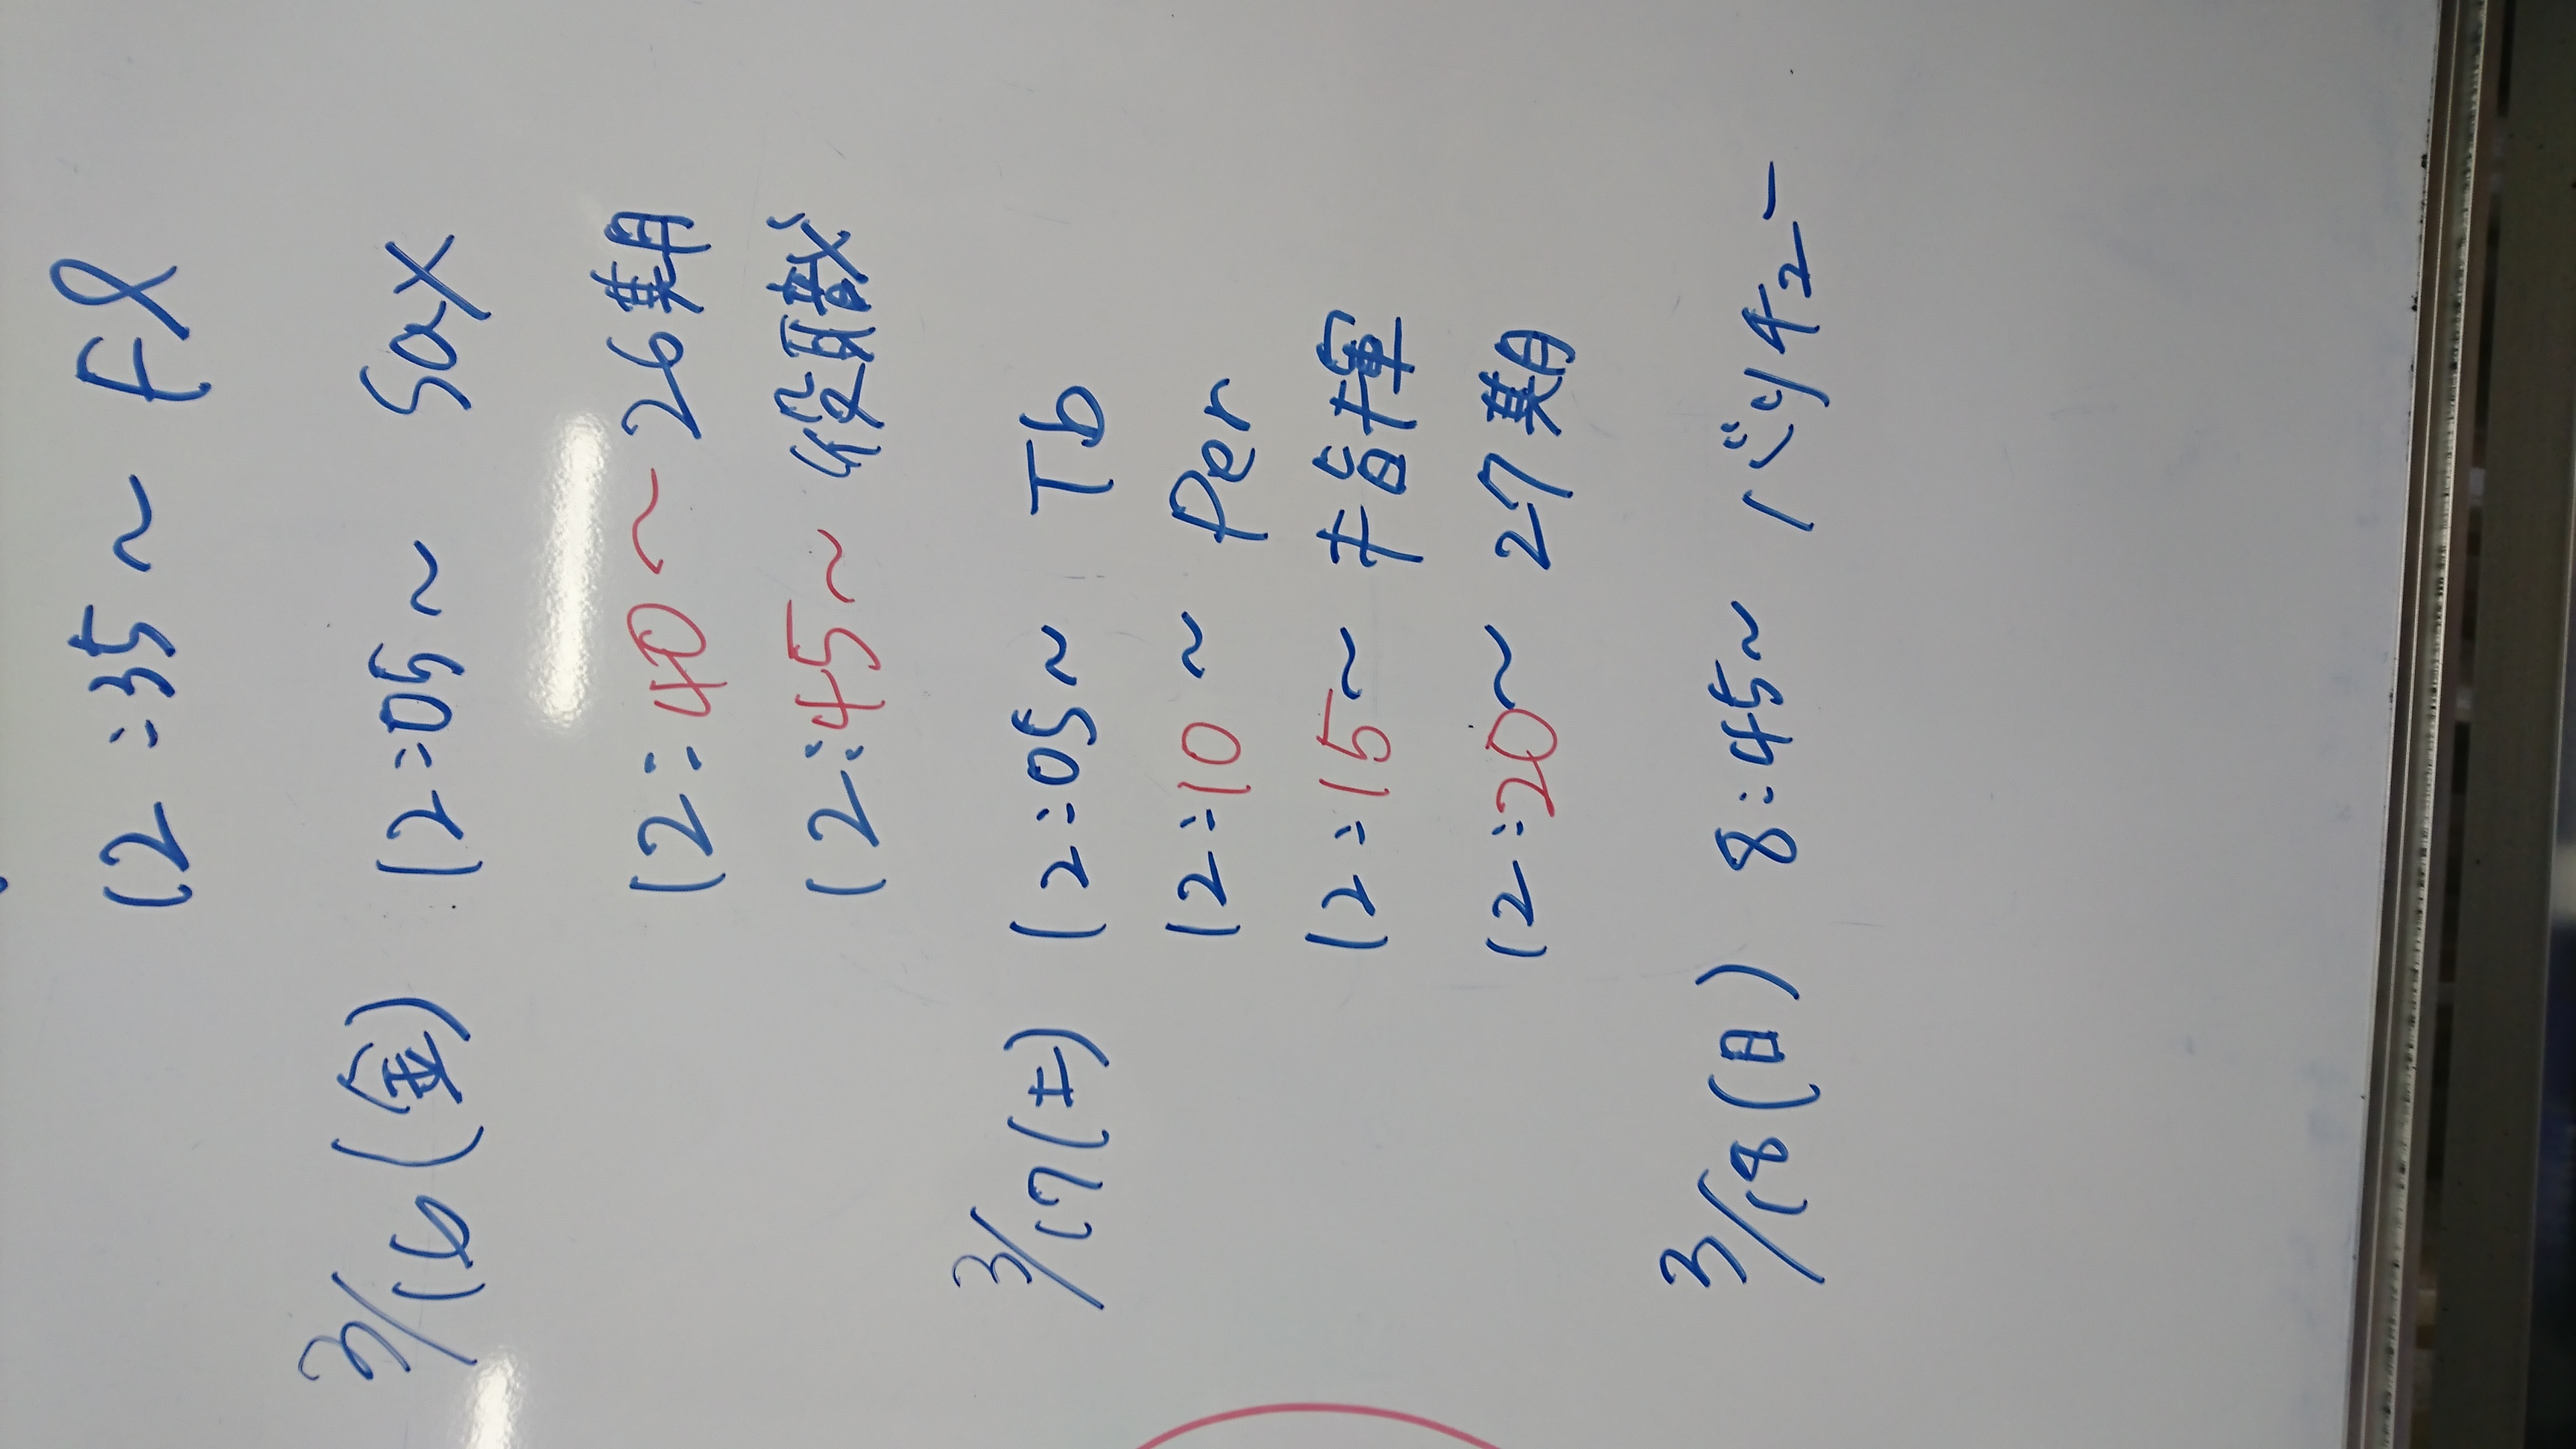 12:35~ Fl
3/16(金) 12:05~ Sax
12:40~ 26期
12:45~ 役職
3/17(土) 12:05~ Tb
12:10~ Per
12:15~ 指揮
12:20~ 27期
3/18(日) 8:45~ バリチュー